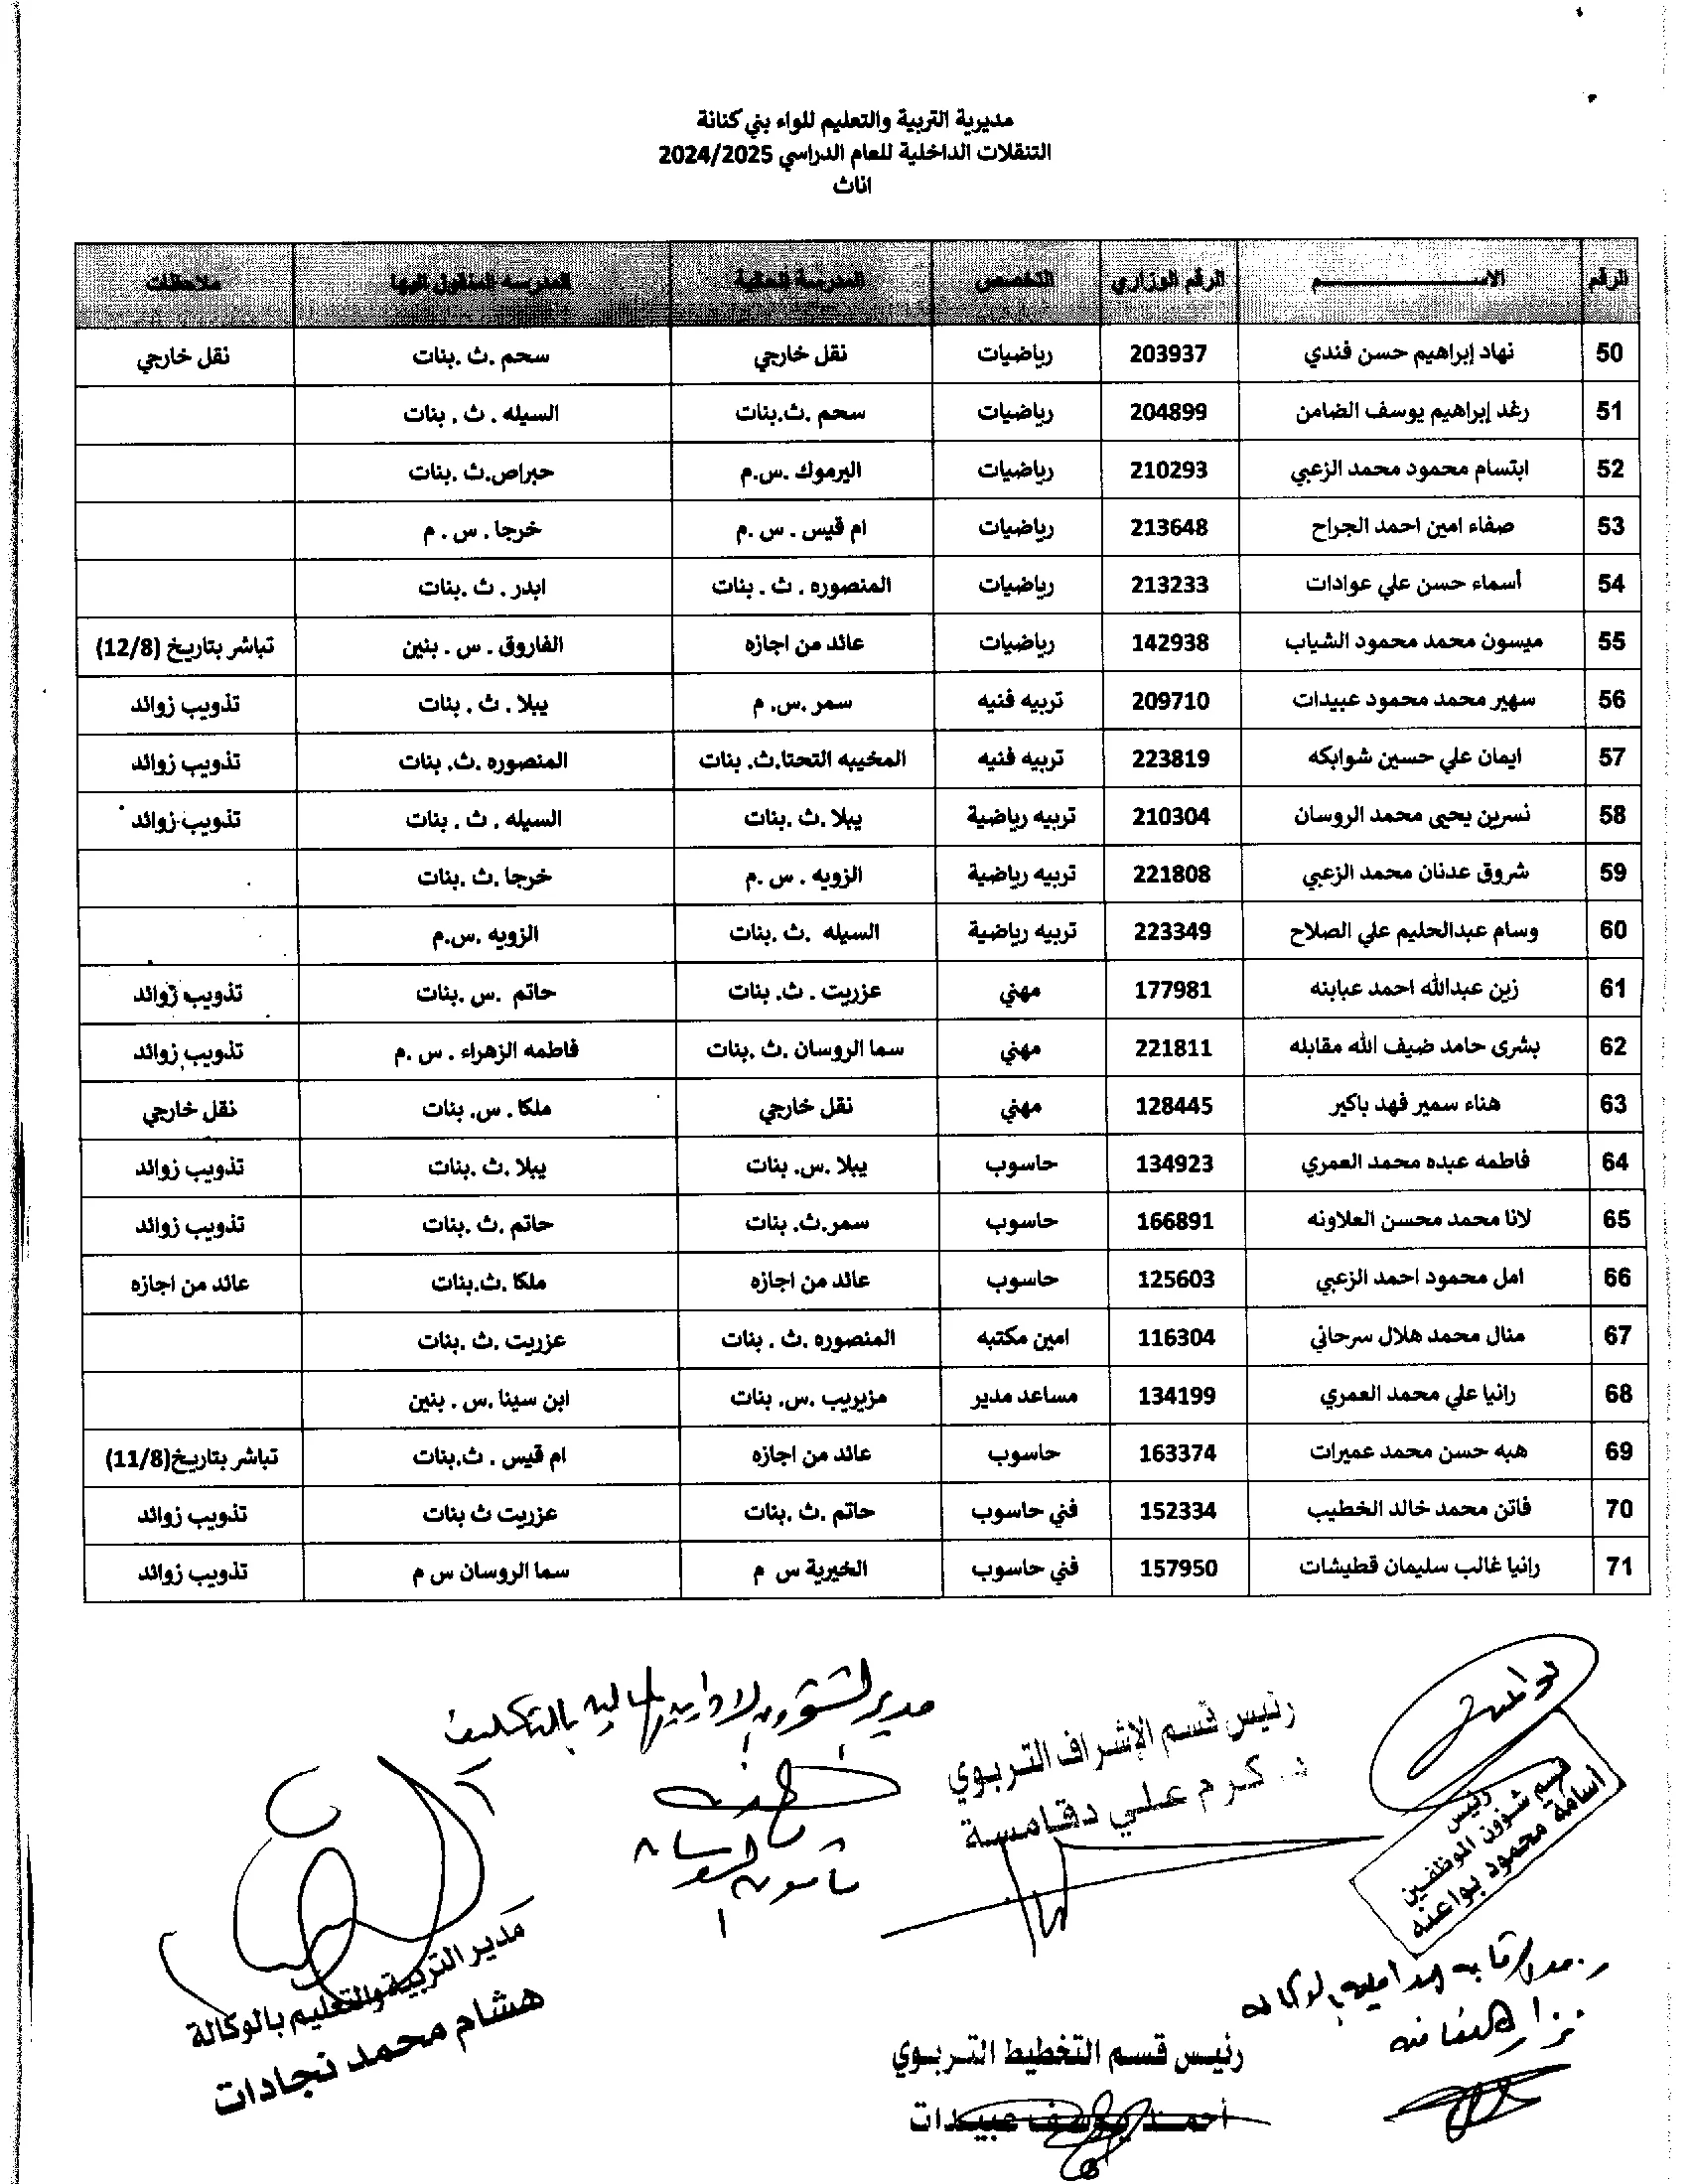 مديرية التربية والتعليم للواء بني كنانة
التنقلات الداخلية للعام الدراسي 2024/2025
اناث
الرقم الاســـــــــم الرقم الوزاري التخصص المدرسة الحالية المدرسه المنقول اليها ملاحظات
50 نهاد إبراهيم حسن فندي 203937 رياضيات نقل خارجي سحم .ث .بنات نقل خارجي
51 رغد إبراهيم يوسف الضامن 204899 رياضيات سحم .ث.بنات السيله . ث . بنات
52 ابتسام محمود محمد الزعبي 210293 رياضيات اليرموك .س.م حبراص.ث .بنات
53 صفاء امين احمد الجراح 213648 رياضيات ام قيس . س .م خرجا . س . م
54 أسماء حسن علي عوادات 213233 رياضيات المنصوره . ث . بنات ابدر . ث .بنات
55 ميسون محمد محمود الشياب 142938 رياضيات عائد من اجازه الفاروق . س . بنين تباشر بتاريخ (12/8)
56 سهير محمد محمود عبيدات 209710 تربيه فنيه سمر .س. م يبلا . ث . بنات تذويب زوائد
57 ايمان علي حسين شوابكه 223819 تربيه فنيه المخيبه التحتا.ث. بنات المنصوره .ث. بنات تذويب زوائد
58 نسرين يحيى محمد الروسان 210304 تربيه رياضية يبلا .ث .بنات السيله . ث . بنات تذويب زوائد
59 شروق عدنان محمد الزعبي 221808 تربيه رياضية الزويه . س .م خرجا .ث .بنات
60 وسام عبدالحليم علي الصلاح 223349 تربيه رياضية السيله .ث .بنات الزويه .س.م
61 زين عبدالله احمد عبابنه 177981 مهني عزريت . ث. بنات حاتم .س .بنات تذويب زوائد
62 بشرى حامد ضيف الله مقابله 221811 مهني سما الروسان .ث .بنات فاطمه الزهراء . س .م تذويب زوائد
63 هناء سمير فهد باكير 128445 مهني نقل خارجي ملكا . س. بنات نقل خارجي
64 فاطمه عبده محمد العمري 134923 حاسوب يبلا .س. بنات يبلا .ث .بنات تذويب زوائد
65 لانا محمد محسن العلاونه 166891 حاسوب سمر.ث. بنات حاتم .ث .بنات تذويب زوائد
66 امل محمود احمد الزعبي 125603 حاسوب عائد من اجازه ملكا .ث.بنات عائد من اجازه
67 منال محمد هلال سرحاني 116304 امين مكتبه المنصوره .ث . بنات عزريت .ث .بنات
68 رانيا علي محمد العمري 134199 مساعد مدير مزيريب .س. بنات ابن سينا .س . بنين
69 هبه حسن محمد عميرات 163374 حاسوب عائد من اجازه ام قيس . ث.بنات تباشر بتاريخ(11/8)
70 فاتن محمد خالد الخطيب 152334 فني حاسوب حاتم .ث .بنات عزريت ث بنات تذويب زوائد
71 رانيا غالب سليمان قطيشات 157950 فني حاسوب الخيرية س م سما الروسان س م تذويب زوائد
رئيس
قسم شؤون الموظفين
أسامة محمود بواعنه
رئيس قسم الإشراف التربوي
د. كرم علي دقامسة
مدير الشؤون الادارية والمالية بالتكليف
مدير التربية والتعليم بالوكالة
هشام محمد نجادات
رئيس قسم التخطيط التربوي
أحمد يوسف عبيدات